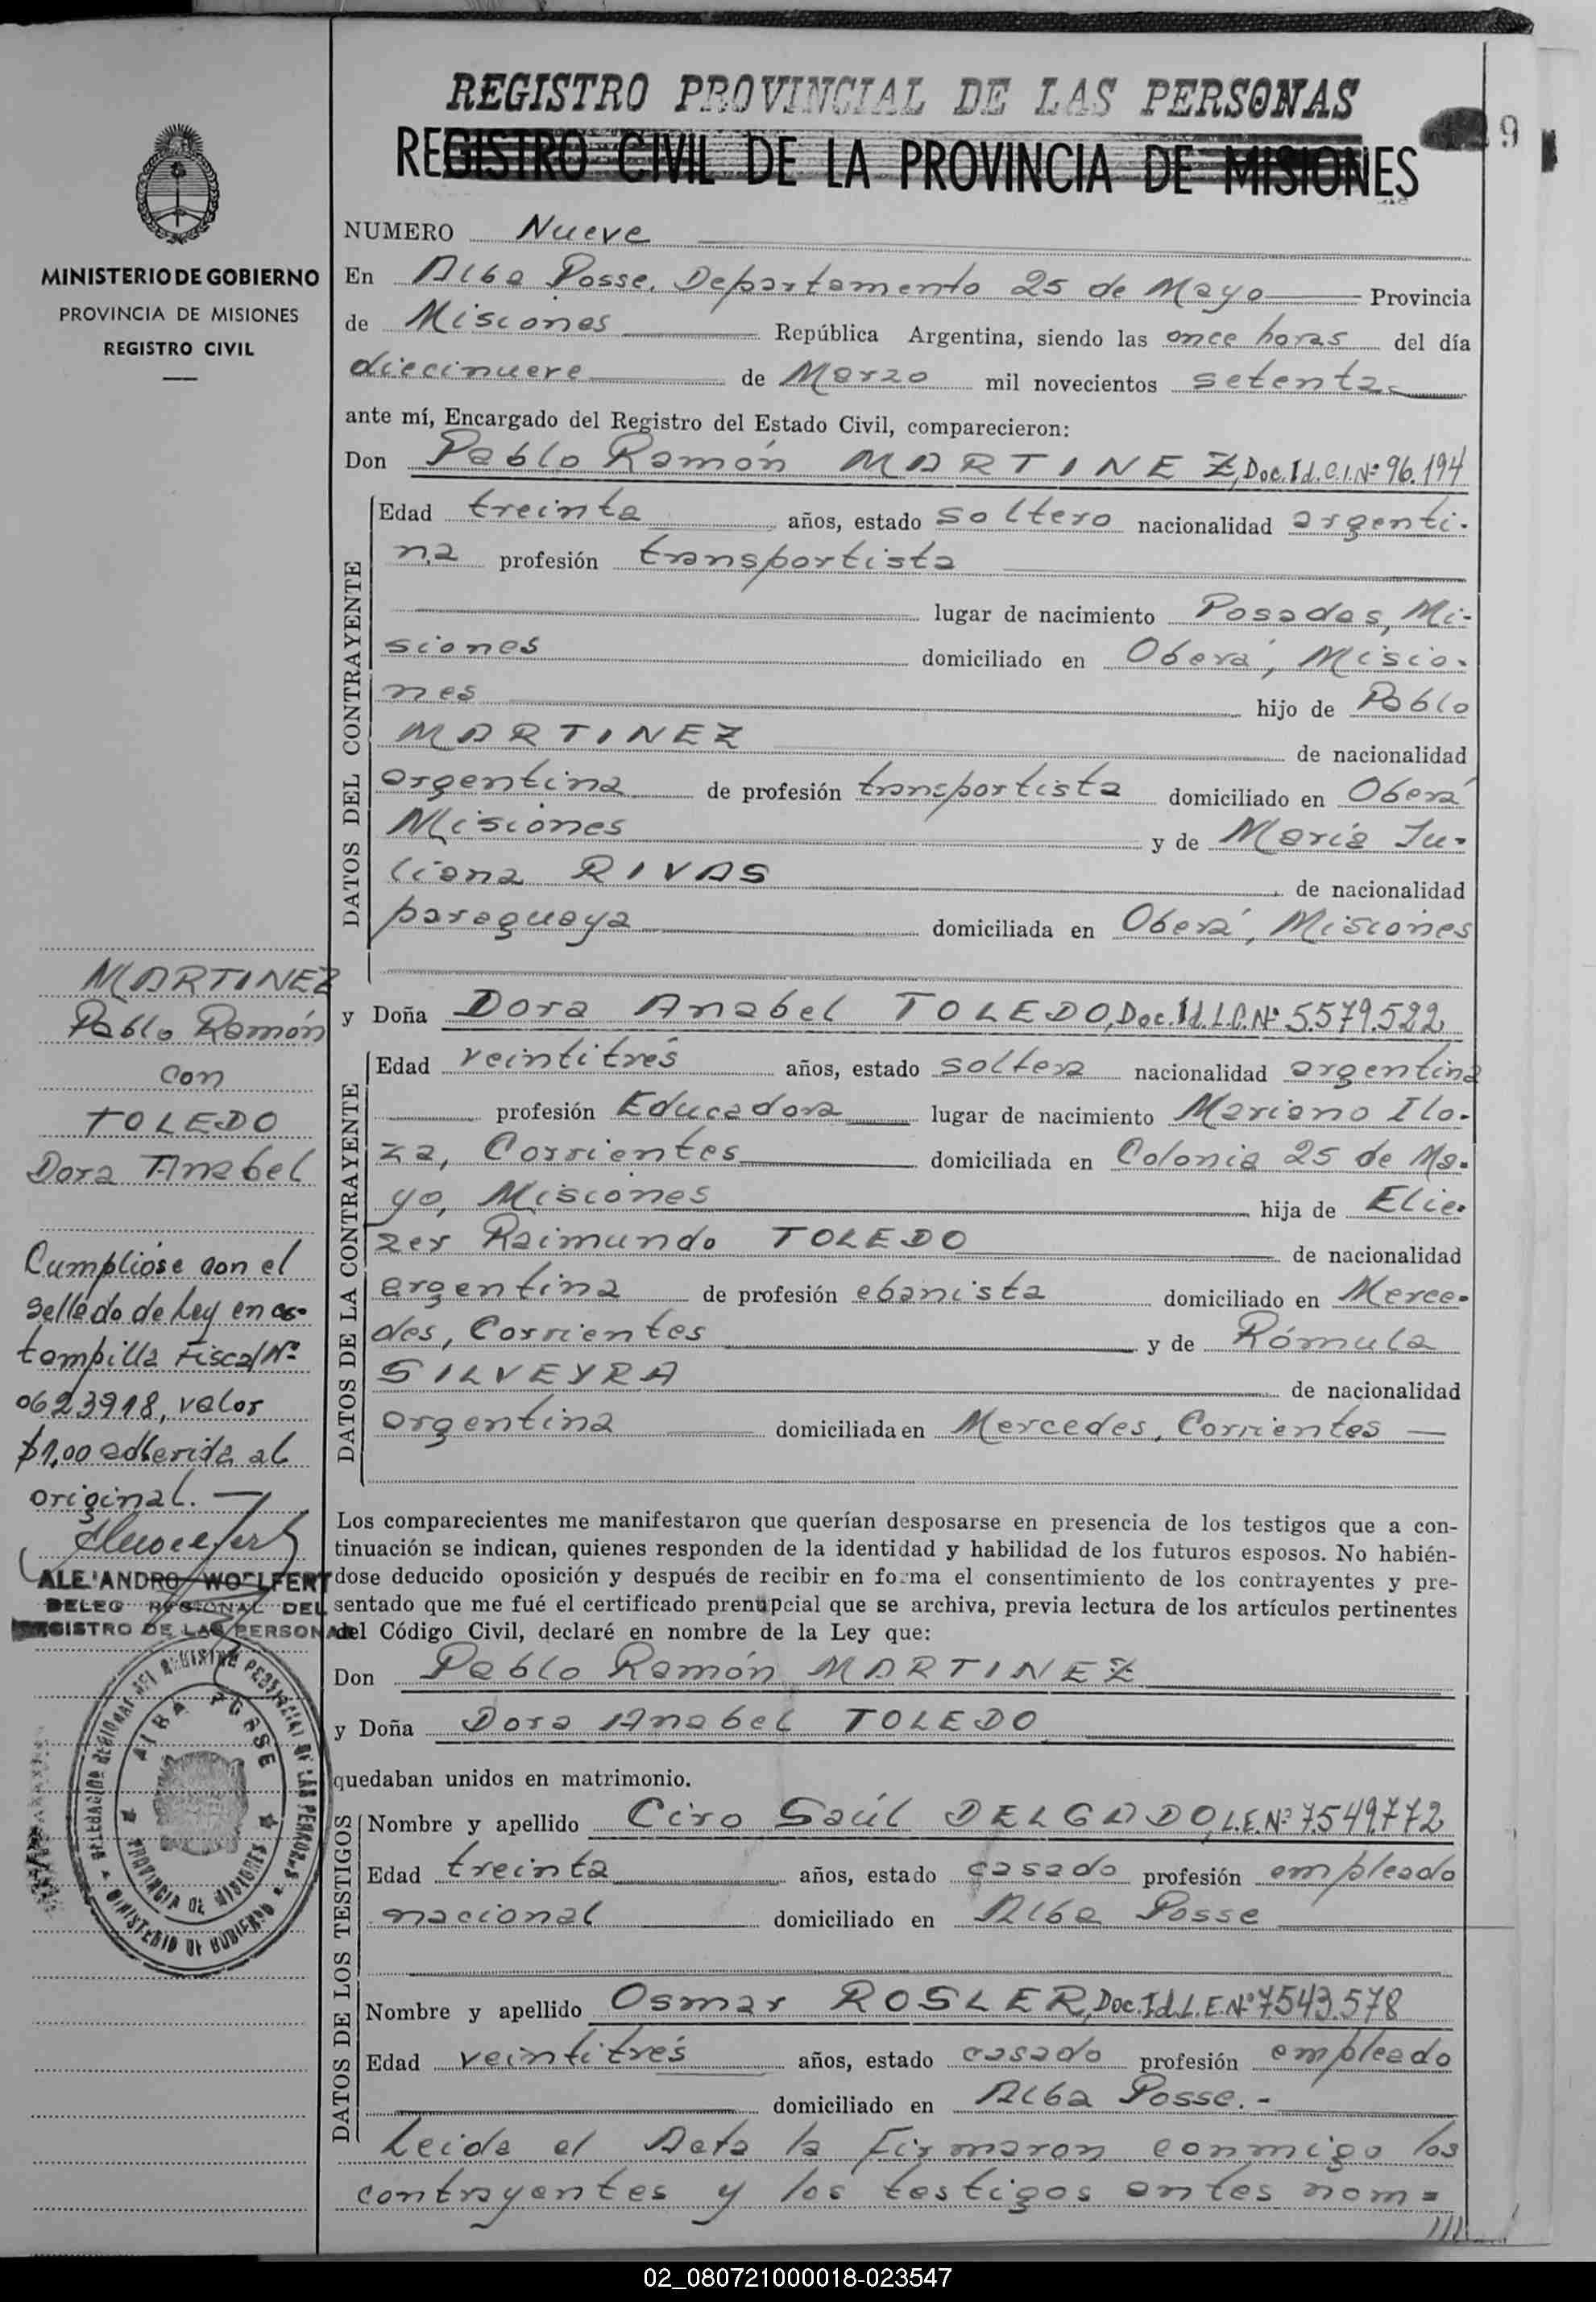 REGISTRO PROVINCIAL DE LAS PERSONAS
REGISTRO CIVIL DE LA PROVINCIA DE MISIONES
9
MINISTERIO DE GOBIERNO
PROVINCIA DE MISIONES
REGISTRO CIVIL
NUMERO Nueve
En Alba Posse, Departamento 25 de Mayo Provincia
de Misiones República Argentina, siendo las once horas del día
diecinueve de Marzo mil novecientos setenta
ante mí, Encargado del Registro del Estado Civil, comparecieron:
Don Pablo Ramón MARTINEZ, Doc. Id. C.I. Nº 96.194
DATOS DEL CONTRAYENTE
Edad treinta años, estado soltero nacionalidad argenti-
na profesión transportista
lugar de nacimiento Posadas, Mi-
siones domiciliado en Oberá, Misio-
nes hijo de Pablo
MARTINEZ de nacionalidad
argentina de profesión transportista domiciliado en Oberá
Misiones y de María Ju-
liana RIVAS de nacionalidad
paraguaya domiciliada en Oberá, Misiones
y Doña Dora Anabel TOLEDO, Doc. Id. L.C. Nº 5.579.522
DATOS DE LA CONTRAYENTE
Edad veintitrés años, estado soltera nacionalidad argentina
profesión Educadora lugar de nacimiento Mariano I. Lo-
za, Corrientes domiciliada en Colonia 25 de Ma-
yo, Misiones hija de Elie-
zer Raimundo TOLEDO de nacionalidad
argentina de profesión ebanista domiciliado en Merce-
des, Corrientes y de Rómula
SILVEYRA de nacionalidad
argentina domiciliada en Mercedes, Corrientes —
MARTINEZ
Pablo Ramón
con
TOLEDO
Dora Anabel
Cumplióse con el
sellado de Ley en es-
tampilla Fiscal Nº
0623918, valor
$1,00 adherida al
original. —
ALEJANDRO WOELFERT
DELEG REGIONAL DEL
REGISTRO DE LAS PERSONAS
DELEGACION REGIONAL DEL REGISTRO PROVINCIAL DE LAS PERSONAS
ALBA POSSE
PROVINCIA DE MISIONES
MINISTERIO DE GOBIERNO
Los comparecientes me manifestaron que querían desposarse en presencia de los testigos que a con-
tinuación se indican, quienes responden de la identidad y habilidad de los futuros esposos. No habién-
dose deducido oposición y después de recibir en forma el consentimiento de los contrayentes y pre-
sentado que me fué el certificado prenupcial que se archiva, previa lectura de los artículos pertinentes
del Código Civil, declaré en nombre de la Ley que:
Don Pablo Ramón MARTINEZ
y Doña Dora Anabel TOLEDO
quedaban unidos en matrimonio.
DATOS DE LOS TESTIGOS
Nombre y apellido Ciro Saúl DELGADO, L.E. Nº 7.549.772
Edad treinta años, estado casado profesión empleado
nacional domiciliado en Alba Posse
Nombre y apellido Osmar ROSLER, Doc. Id. L.E. Nº 7.543.578
Edad veintitrés años, estado casado profesión empleado
domiciliado en Alba Posse.-
Leida el Acta la Firmaron conmigo los
contrayentes y los testigos antes nom=
///
02_080721000018-023547